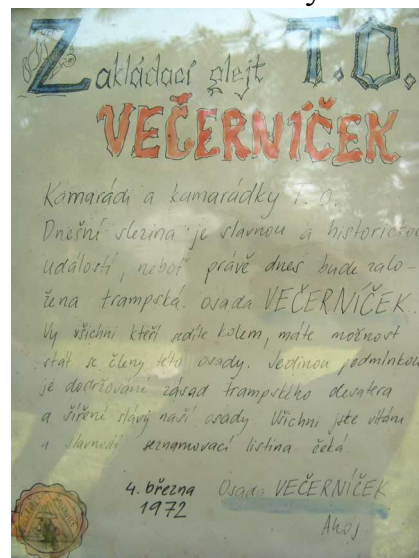 Zakládací glejt T.O.
VEČERNÍČEK
Kamarádi a kamarádky T.O.
Dnešní slezina je slavnou a historickou
událostí, neboť právě dnes bude zalo-
žena trampská osada VEČERNÍČEK.
Vy všichni kteří sedíte kolem, máte možnost
stát se členy této osady. Jedinou podmínkou
je dodržování zásad trampského desatera
a šíření slávy naší osady Všichni jste vítáni
a slavnostní seznamovací listina čeká
4. března Osada VEČERNÍČEK
1972
Ahoj